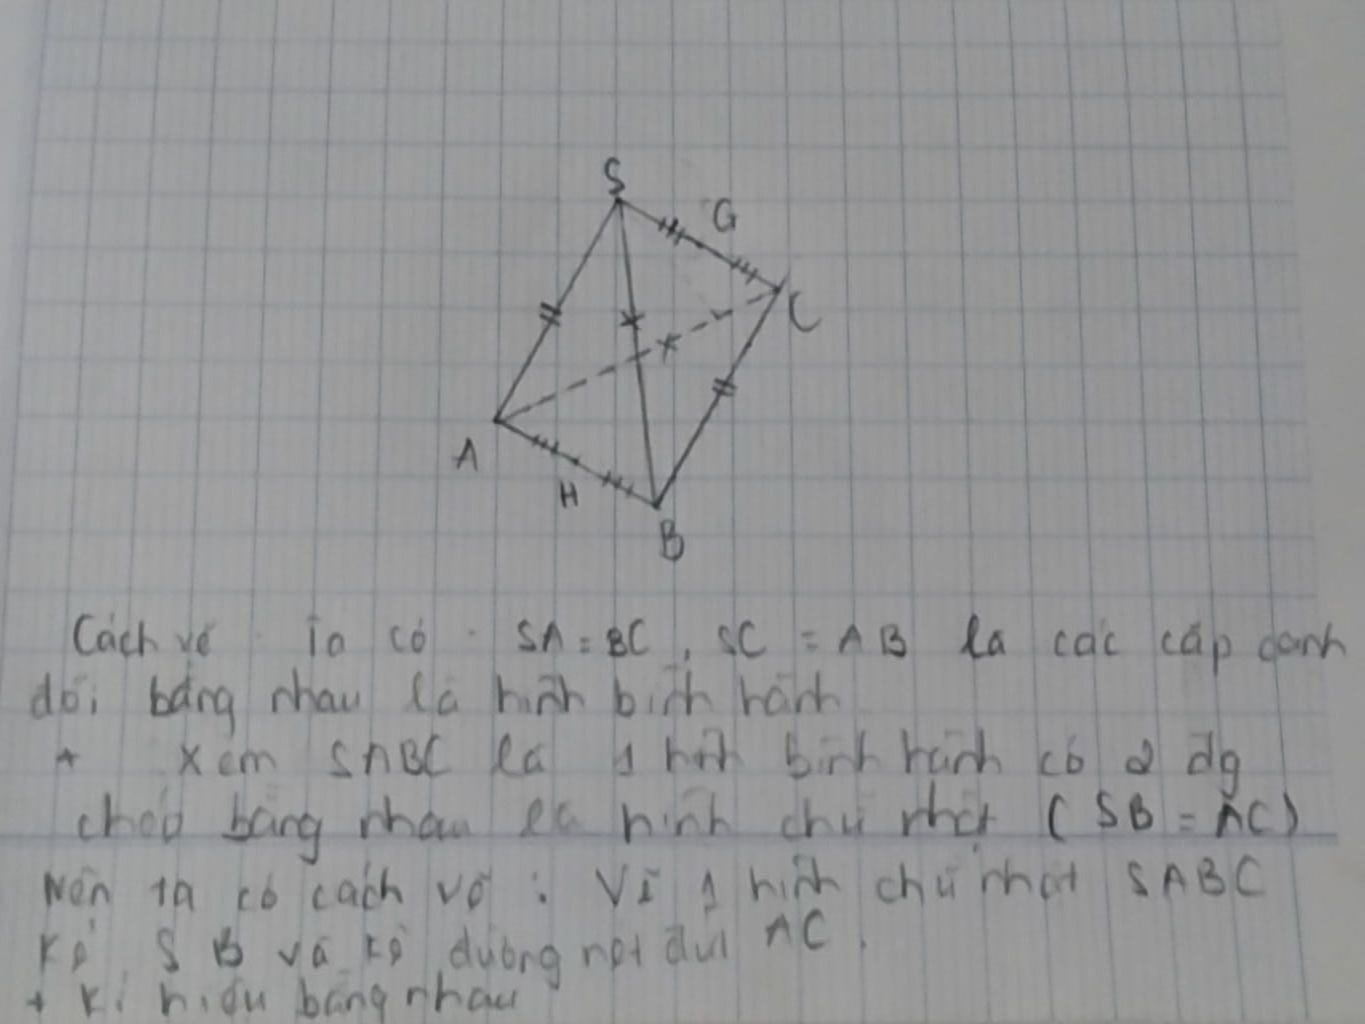 S
G
C
A
H
B
Cách vẽ Ta có : SA = BC , SC = AB là các cặp cạnh
đối bằng nhau là hình bình hành
+ Xem SABC là 1 hình bình hành có 2 đg
chéo bằng nhau là hình chữ nhật ( SB = AC )
Nên ta có cách vẽ : Vẽ 1 hình chữ nhật SABC
Kẻ SB và kẻ đường nét đứt AC .
+ Kí hiệu bằng nhau